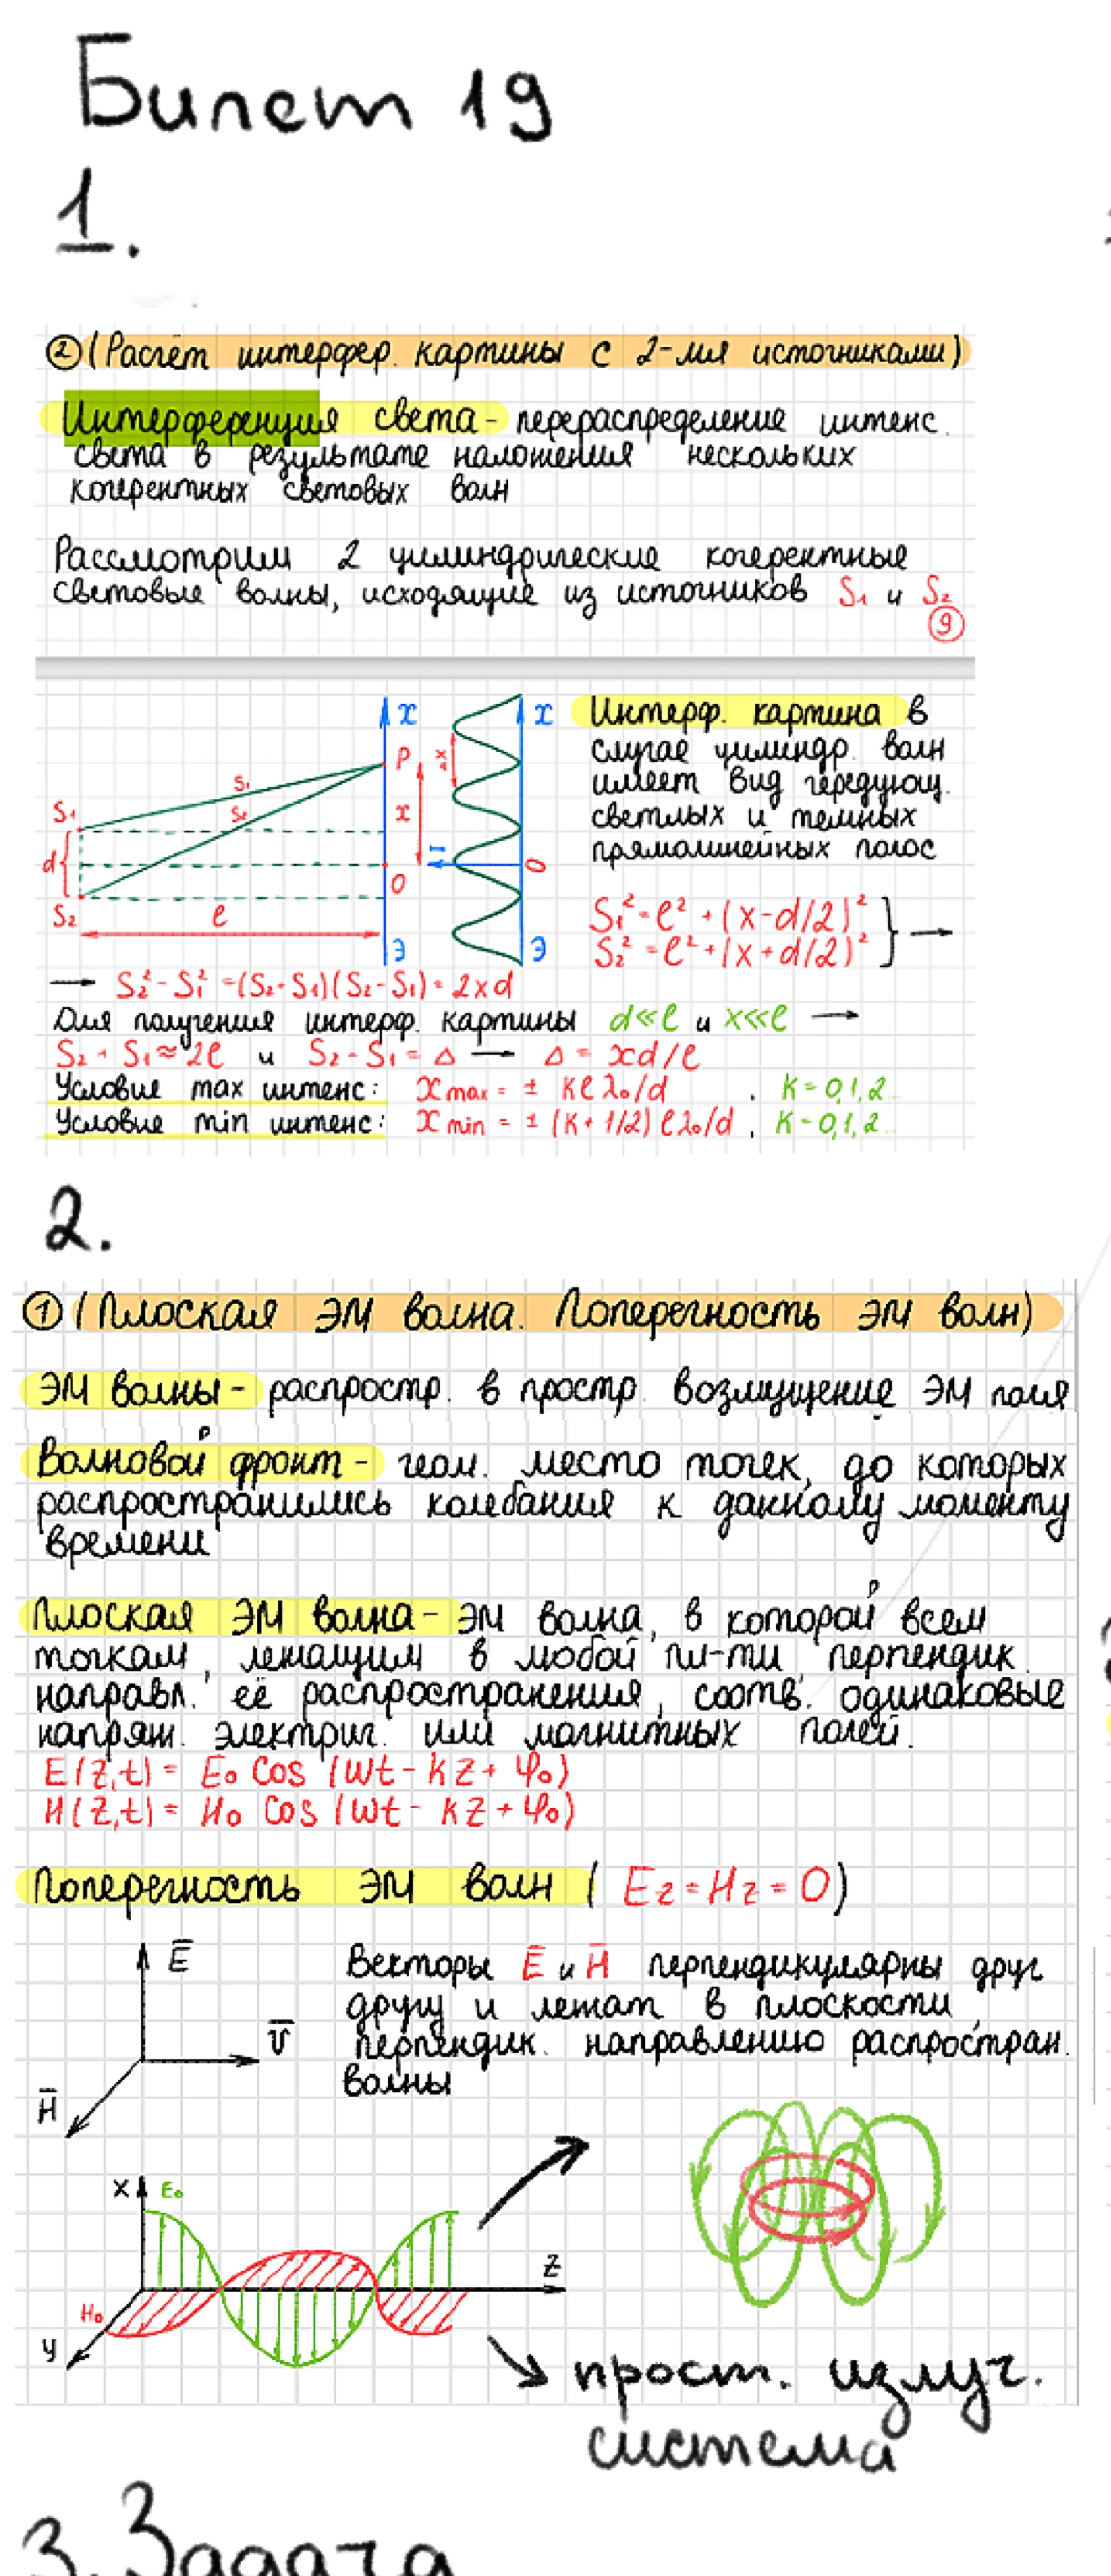 Билет 19
1.
② (Расчёт интерфер. картины с 2-мя источниками)
Интерференция света - перераспределение интенс.
света в результате наложения нескольких
когерентных световых волн
Рассмотрим 2 цилиндрические когерентные
световые волны, исходящие из источников S₁ и S₂
9
x
P
S₁
S₂
x
S₁
d
O
S₂
l
Э
x
Δx
I
O
Э
Интерф. картина в
случае цилиндр. волн
имеет вид чередующ.
светлых и темных
прямолинейных полос
S₁² = l² + (x-d/2)²
S₂² = l² + (x+d/2)² } →
→ S₂² - S₁² = (S₂-S₁)(S₂-S₁) = 2xd
Для получения интерф. картины d≪l и x≪l →
S₂ + S₁ ≈ 2l и S₂ - S₁ = Δ → Δ = xd/l
Условие max интенс: x max = ± K l λ₀/d , K = 0,1,2...
Условие min интенс: x min = ± (K + 1/2) l λ₀/d , K = 0,1,2...
2.
① (Плоская ЭМ волна. Поперечность ЭМ волн)
ЭМ волны - распростр. в простр. возмущение ЭМ поля
Волновой фронт - геом. место точек, до которых
распространились колебания к данному моменту
времени
Плоская ЭМ волна - ЭМ волна, в которой всем
точкам, лежащим в любой пл-ти, перпендик.
направл. её распространения, соотв. одинаковые
напряж. электрич. или магнитных полей.
E(z,t) = E₀ cos (ωt - kz + φ₀)
H(z,t) = H₀ cos (ωt - kz + φ₀)
Поперечность ЭМ волн ( Ez = Hz = 0)
Ē
v̄
H̄
Векторы Ē и H̄ перпендикулярны друг
другу и лежат в плоскости
перпендик. направлению распростран.
волны
x
E₀
z
H₀
y
прост. излуч.
система
3. Задача